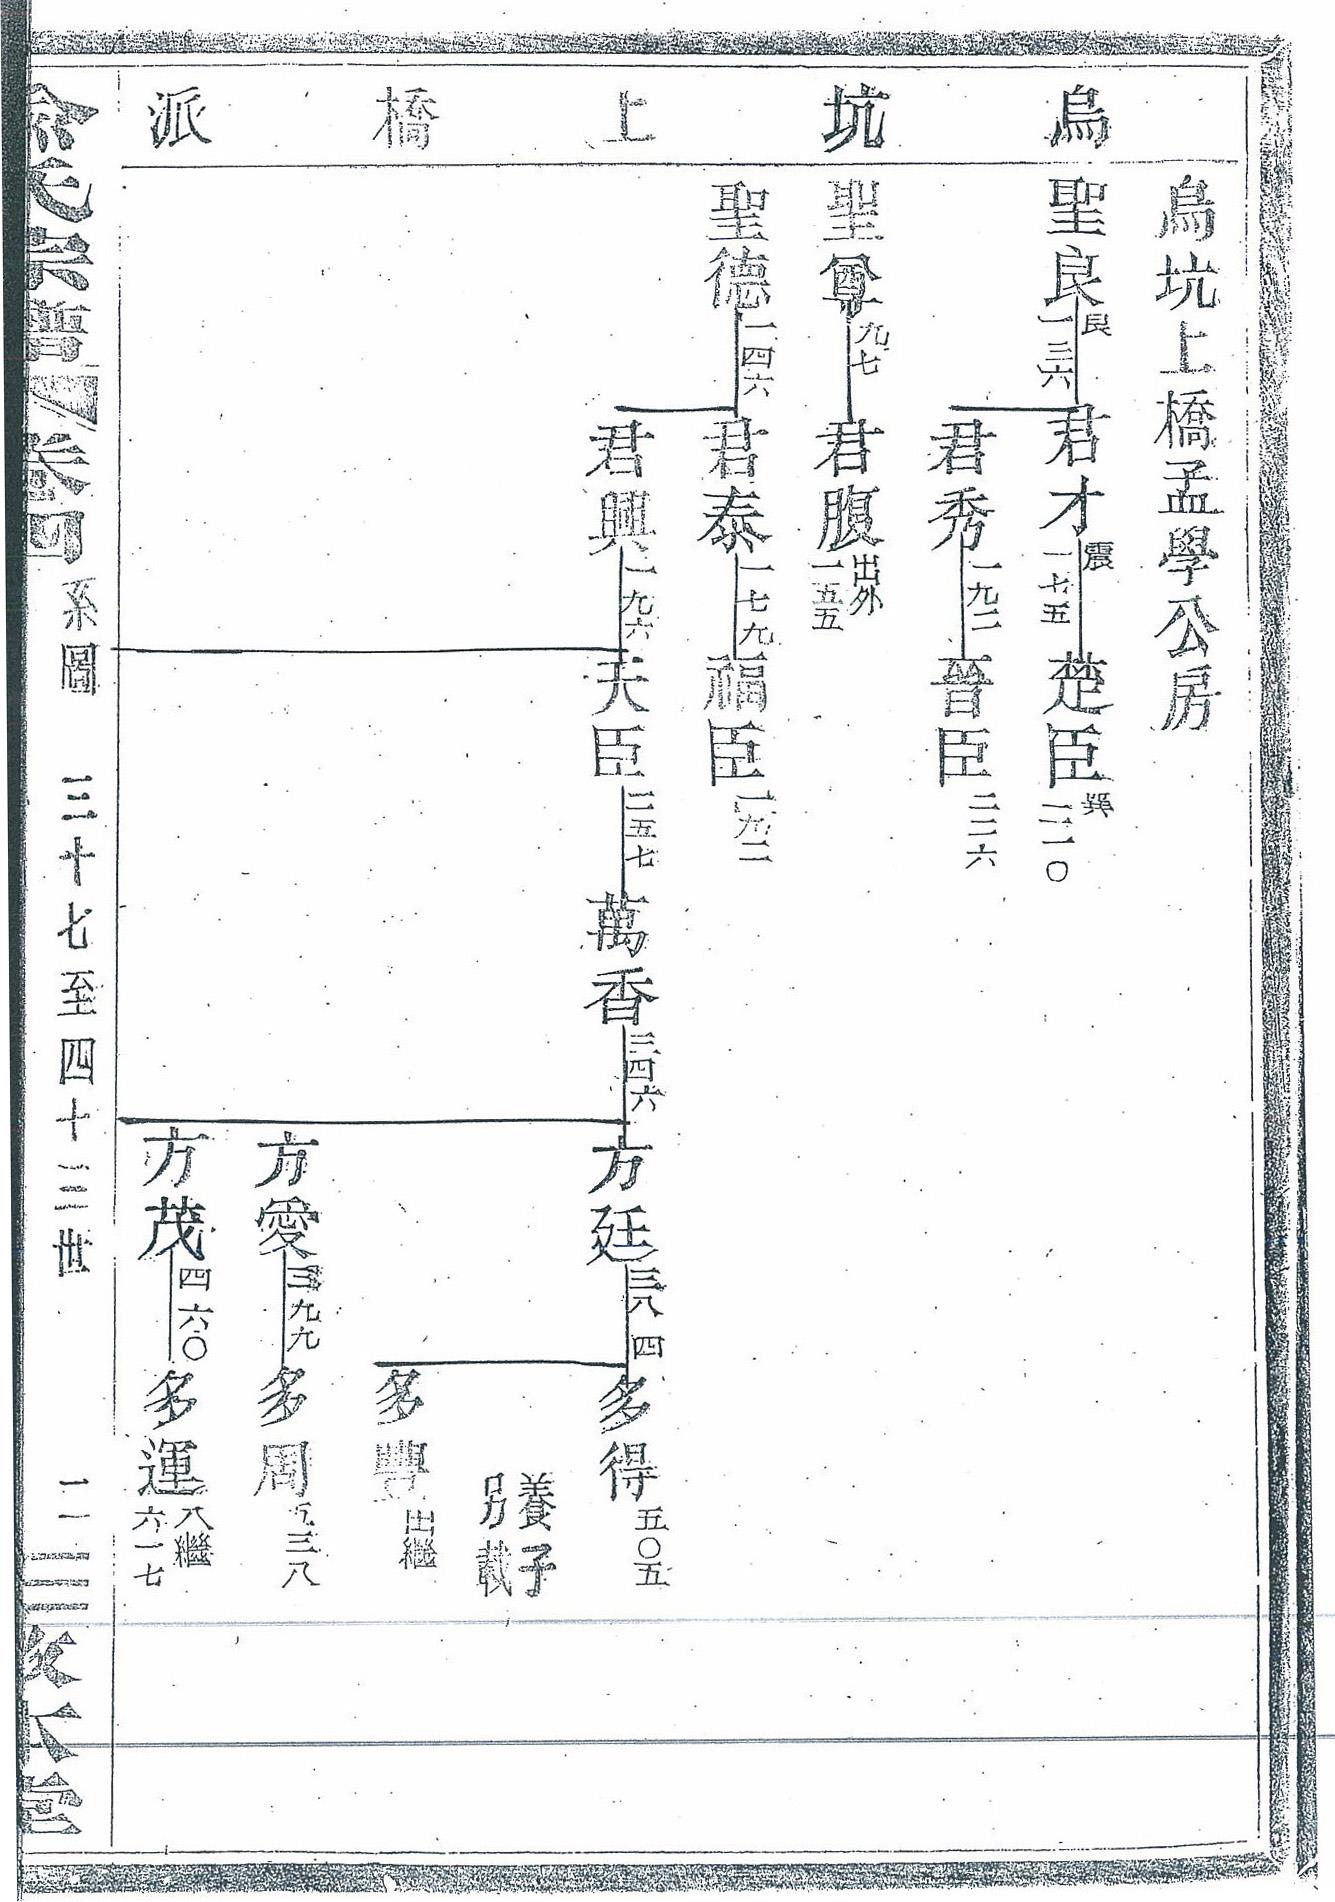 烏坑上橋派
烏坑上橋孟學公房
聖良
良
一三六
君才
震
一七五
楚臣
巽
二一〇
君秀
一九二
晉臣
二二六
聖尊
九七
君腹
出外
一五五
聖德
一四六
君泰
一七九
福臣
一九二
君興
一九六
天臣
二五七
萬香
三四六
方廷
三八四
多得
五〇五
養子
另載
多豐
出繼
方愛
三九九
多周
五三八
方茂
四六〇
多運
入繼
六一七
余氏宗譜
卷四
系圖
三十七至四十三世
二一
敦本堂